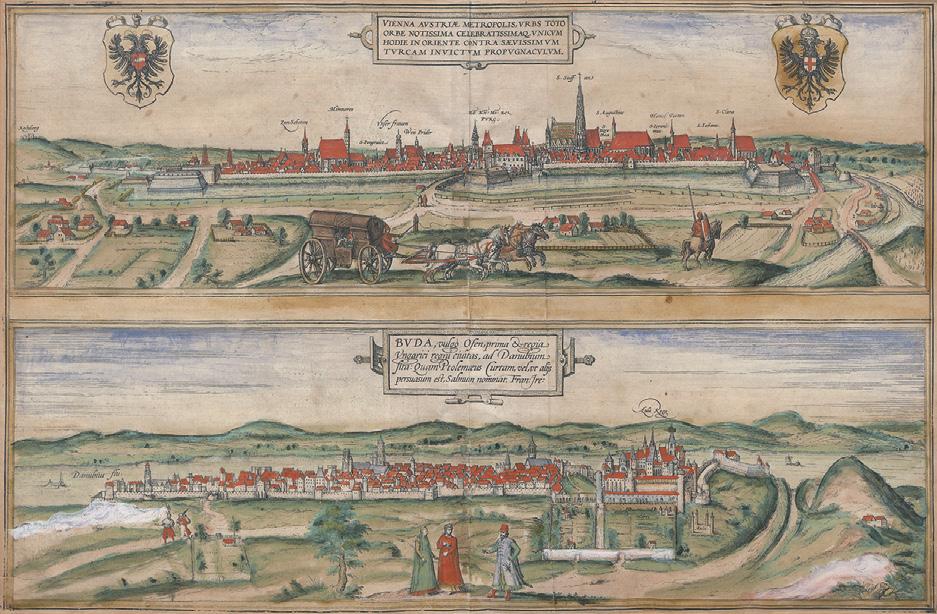 VIENNA AVSTRIÆ METROPOLIS, VRBS TOTO
ORBE NOTISSIMA CELEBRATISSIMAQ, VNICVM
HODIE IN ORIENTE CONTRA SÆVISSIMVM
TVRCAM INVICTVM PROPVGNACVLVM.
S. Steff ans
Minnoren
S. Augustin
S. Clara
Vnser frauen
PVRG.
BVDA, vulgo Ofen, prima & regia
Vngarici regni ciuitas, ad Danubium
sita. Quam Ptolemæus Curtam, vel, ut aliis
persuasum est, Salinum nominat. Fran: Ire:
Aula Regis
Danubius flu: